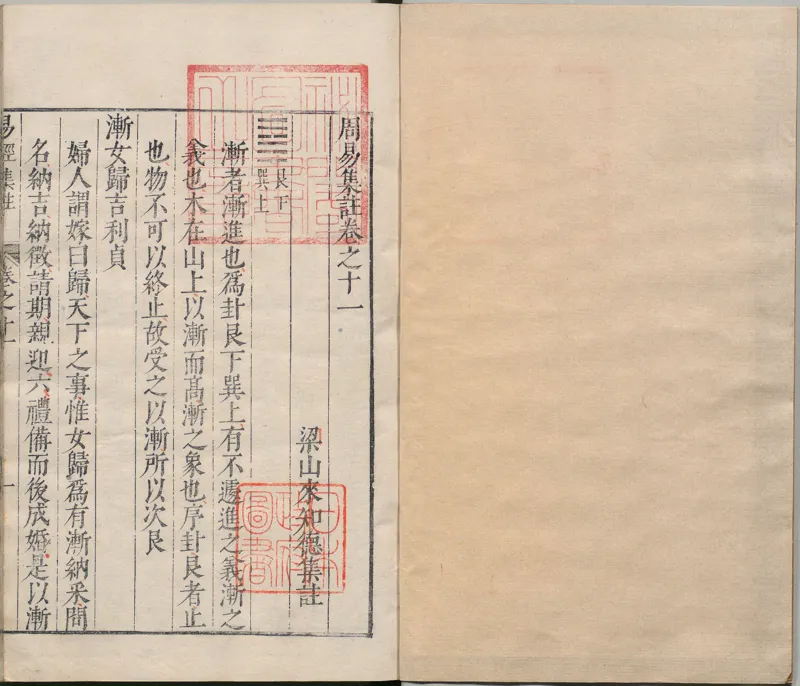 周易集註卷之十一
梁山來知德集註
艮下
巽上
漸者漸進也為卦艮下巽上有不遽進之義漸之
義也木在山上以漸而高漸之象也序卦艮者止
也物不可以終止故受之以漸所以次艮
漸女歸吉利貞
婦人謂嫁曰歸天下之事惟女歸為有漸納采問
名納吉納徵請期親迎六禮備而後成婚是以漸
易經集註
卷之十一
一
圖書